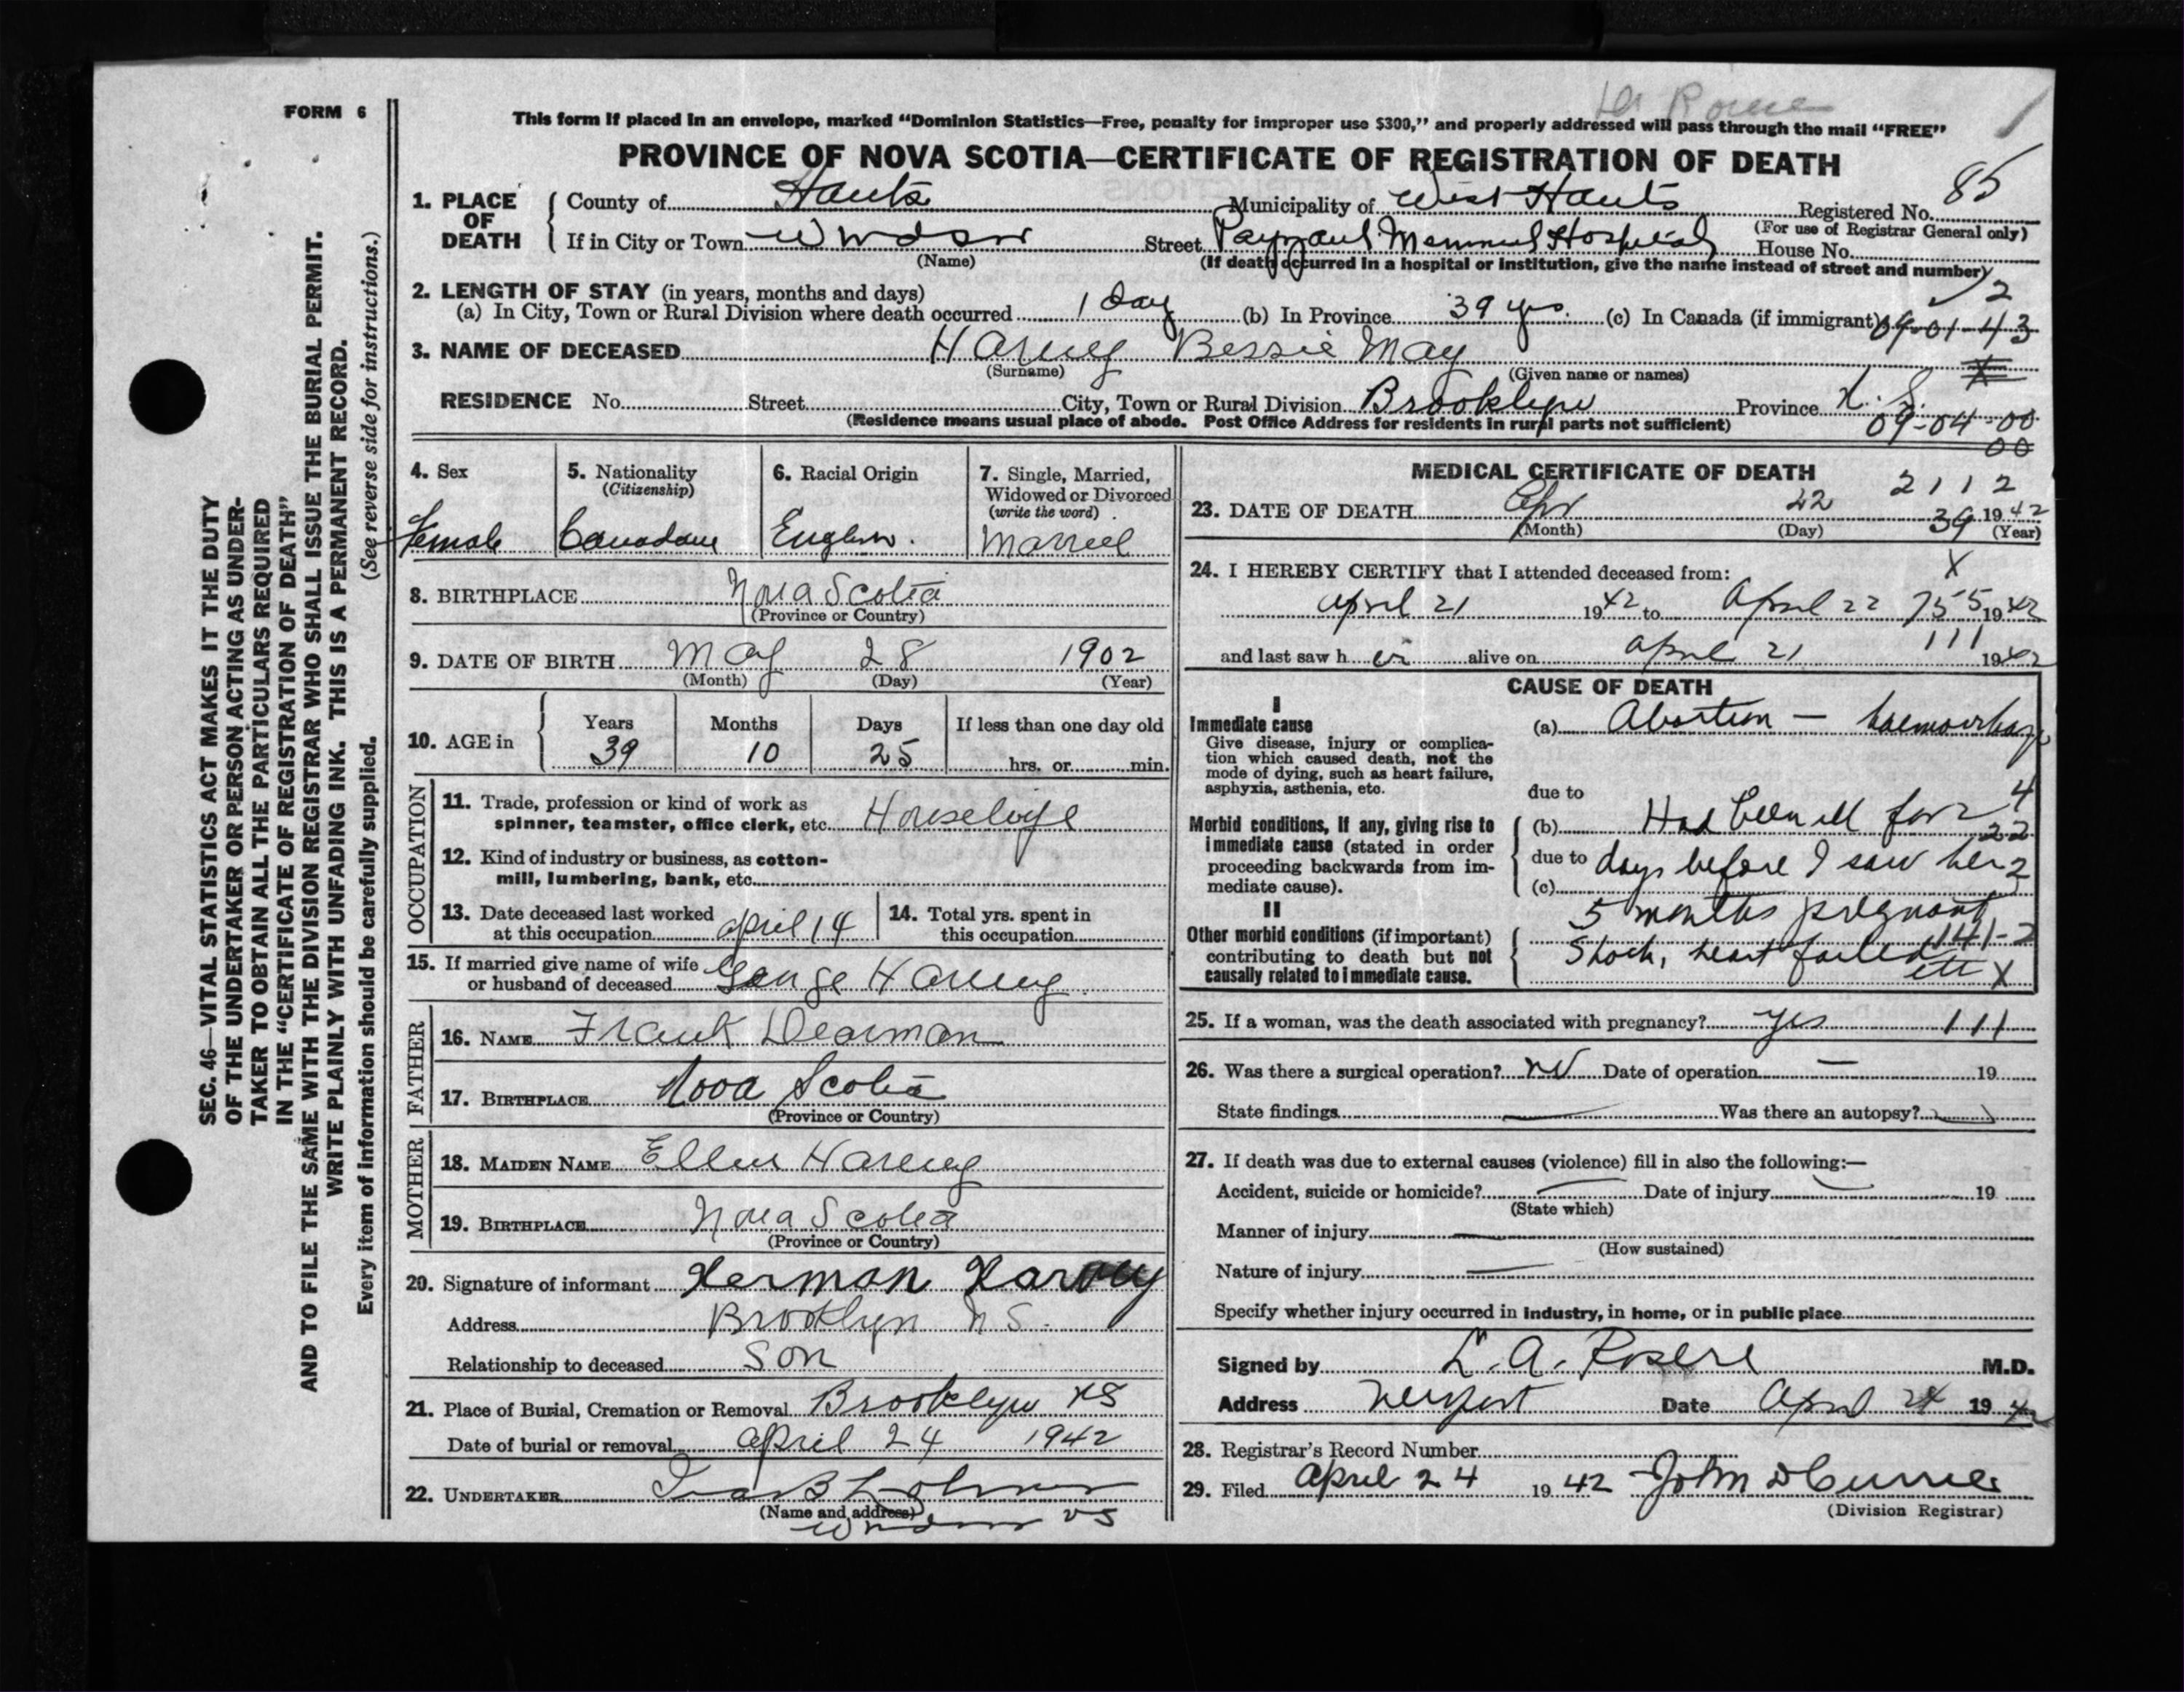 FORM 6
This form if placed in an envelope, marked “Dominion Statistics—Free, penalty for improper use $300,” and properly addressed will pass through the mail “FREE”
PROVINCE OF NOVA SCOTIA—CERTIFICATE OF REGISTRATION OF DEATH
85
1. PLACE OF DEATH
County of Hants Municipality of West Hants Registered No.
(For use of Registrar General only)
If in City or Town Windsor Street Payzant Memorial Hospital House No.
(Name) (If death occurred in a hospital or institution, give the name instead of street and number)
2
2. LENGTH OF STAY (in years, months and days)
(a) In City, Town or Rural Division where death occurred 1 day (b) In Province 39 yrs. (c) In Canada (if immigrant) 09-01-43
3. NAME OF DECEASED Harvey Bessie May
(Surname) (Given name or names)
RESIDENCE No. Street City, Town or Rural Division Brooklyn Province N.S.
(Residence means usual place of abode. Post Office Address for residents in rural parts not sufficient)
09-04-00
00
4. Sex
Female
5. Nationality
(Citizenship)
Canadian
6. Racial Origin
English.
7. Single, Married,
Widowed or Divorced
(write the word)
Married
8. BIRTHPLACE Nova Scotia
(Province or Country)
9. DATE OF BIRTH May 28 1902
(Month) (Day) (Year)
10. AGE in
Years Months Days If less than one day old
39 10 25 hrs. or min.
OCCUPATION
11. Trade, profession or kind of work as
spinner, teamster, office clerk, etc. Housewife
12. Kind of industry or business, as cotton-
mill, lumbering, bank, etc.
13. Date deceased last worked
at this occupation April 14
14. Total yrs. spent in
this occupation
15. If married give name of wife
or husband of deceased George Harvey
FATHER
16. NAME Frank Dearman
17. BIRTHPLACE Nova Scotia
(Province or Country)
MOTHER
18. MAIDEN NAME Ellen Harvey
19. BIRTHPLACE Nova Scotia
(Province or Country)
20. Signature of informant Herman Harvey
Address Brooklyn N S.
Relationship to deceased Son
21. Place of Burial, Cremation or Removal Brooklyn NS
Date of burial or removal April 24 1942
22. UNDERTAKER
(Name and address)
Windsor NS
MEDICAL CERTIFICATE OF DEATH
2112
23. DATE OF DEATH Apr 22 39 1942
(Month) (Day) (Year)
X
24. I HEREBY CERTIFY that I attended deceased from:
April 21 1942 to April 22 755 1942
111
and last saw her alive on April 21 1942
CAUSE OF DEATH
I
Immediate cause
Give disease, injury or complica-
tion which caused death, not the
mode of dying, such as heart failure,
asphyxia, asthenia, etc.
(a) Abortion — haemorrhage
due to
4
Morbid conditions, if any, giving rise to
immediate cause (stated in order
proceeding backwards from im-
mediate cause).
(b) Had been ill for 2
22
due to days before I saw her
2
(c)
II
Other morbid conditions (if important)
contributing to death but not
causally related to immediate cause.
5 months pregnant
141-2
Shock, heart failed
etc X
25. If a woman, was the death associated with pregnancy? yes 111
26. Was there a surgical operation? no Date of operation — 19
State findings — Was there an autopsy?
27. If death was due to external causes (violence) fill in also the following:—
Accident, suicide or homicide? — Date of injury — 19
(State which)
Manner of injury —
(How sustained)
Nature of injury —
Specify whether injury occurred in industry, in home, or in public place
Signed by L. A. M.D.
Address Newport Date April 24 1942
28. Registrar’s Record Number
29. Filed April 24 1942 John D Currie
(Division Registrar)
SEC. 46—VITAL STATISTICS ACT MAKES IT THE DUTY
OF THE UNDERTAKER OR PERSON ACTING AS UNDER-
TAKER TO OBTAIN ALL THE PARTICULARS REQUIRED
IN THE “CERTIFICATE OF REGISTRATION OF DEATH”
AND TO FILE THE SAME WITH THE DIVISION REGISTRAR WHO SHALL ISSUE THE BURIAL PERMIT.
WRITE PLAINLY WITH UNFADING INK. THIS IS A PERMANENT RECORD.
Every item of information should be carefully supplied. (See reverse side for instructions.)